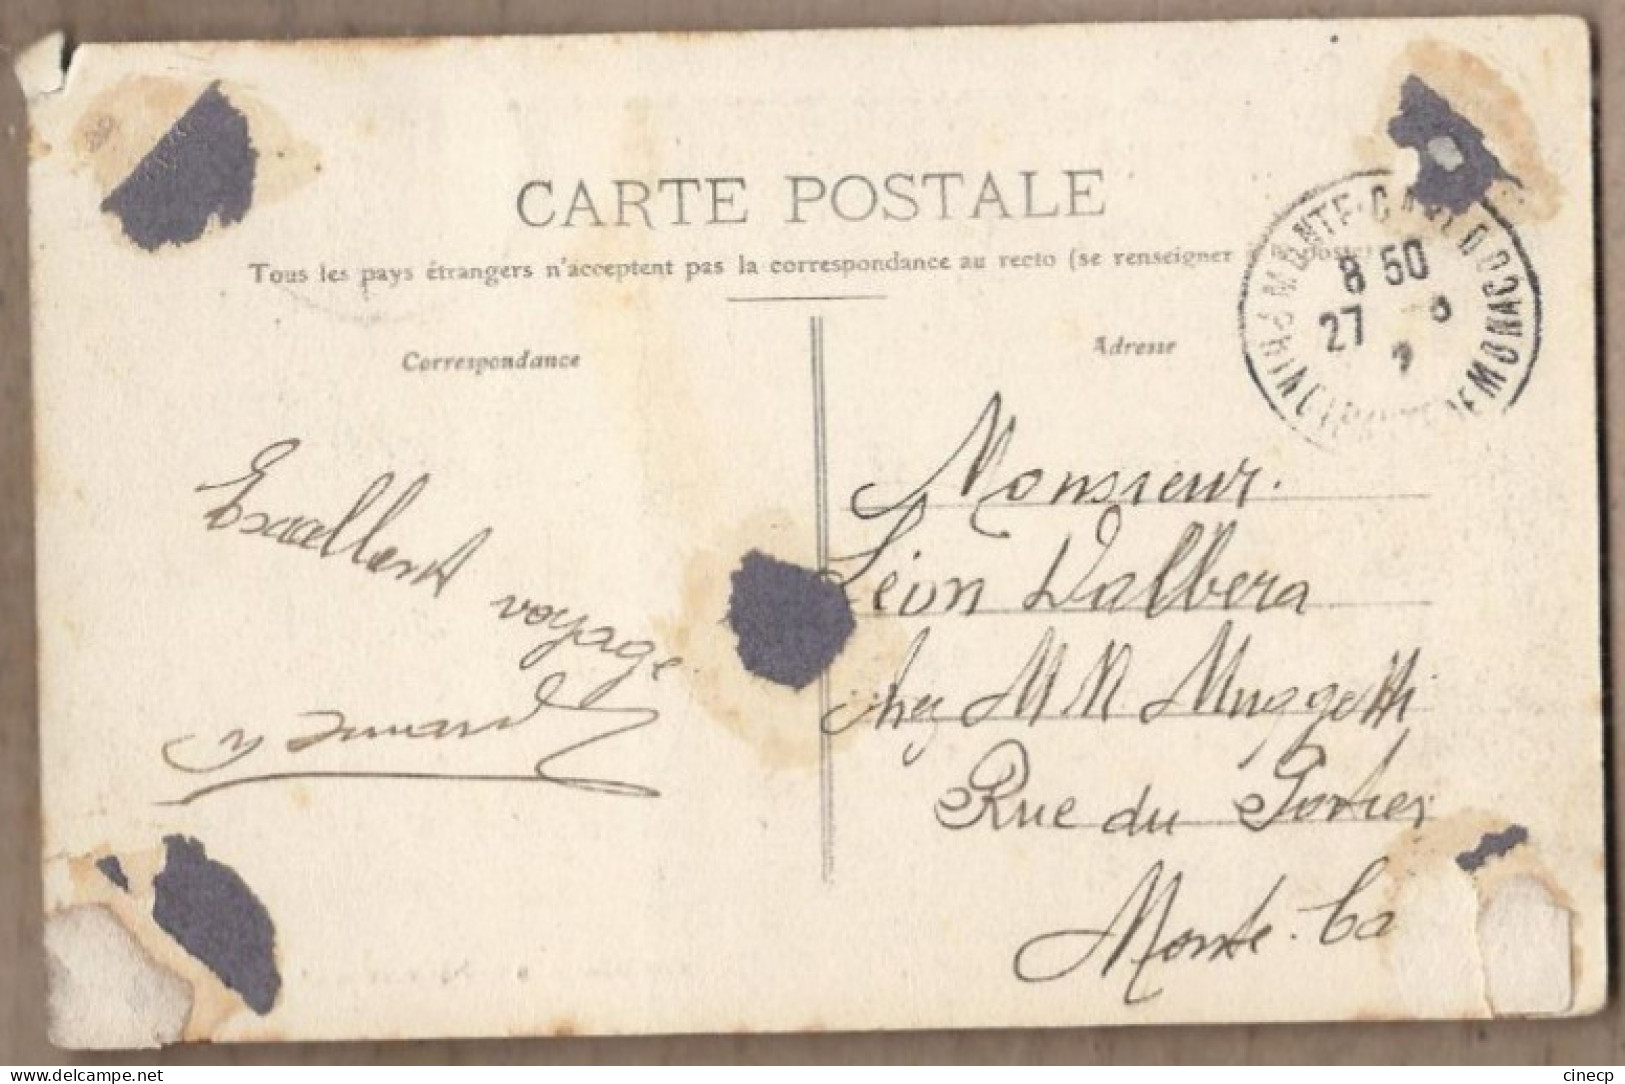 CARTE POSTALE
Tous les pays étrangers n'acceptent pas la correspondance au recto (se renseigner
Correspondance
Adresse
MONTE-CARLO
8 50
27
DE MONACO
Excellent
voyage
Monsieur.
Léon Dalbera
chez M Muggetti
Rue du Portier
Monte-Ca
www.delcampe.net
cinecp